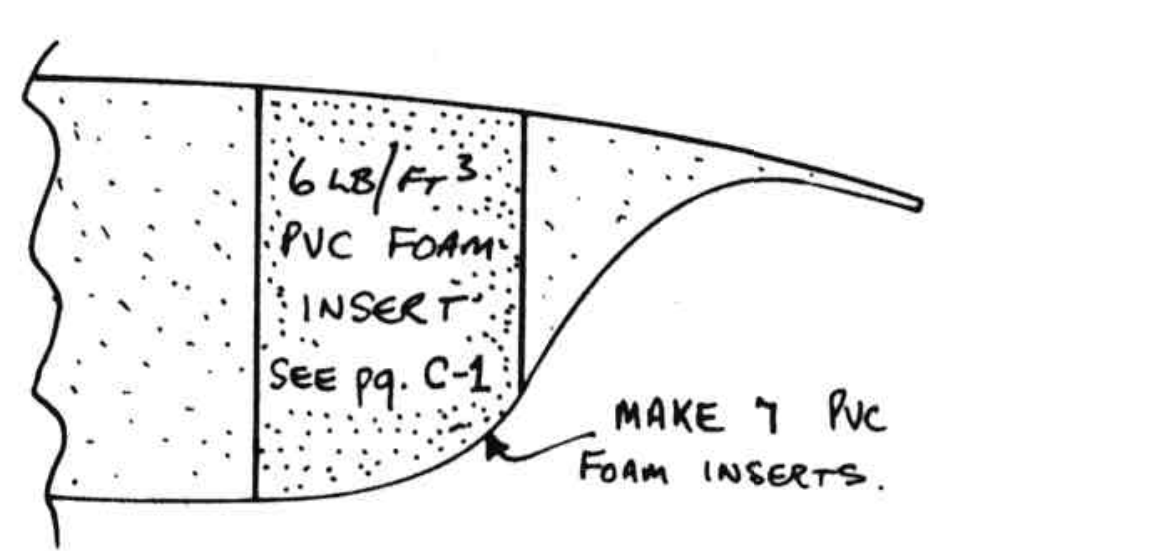 6 LB/FT3
PVC FOAM
INSERT
SEE pg. C-1
MAKE 7 PVC
FOAM INSERTS.